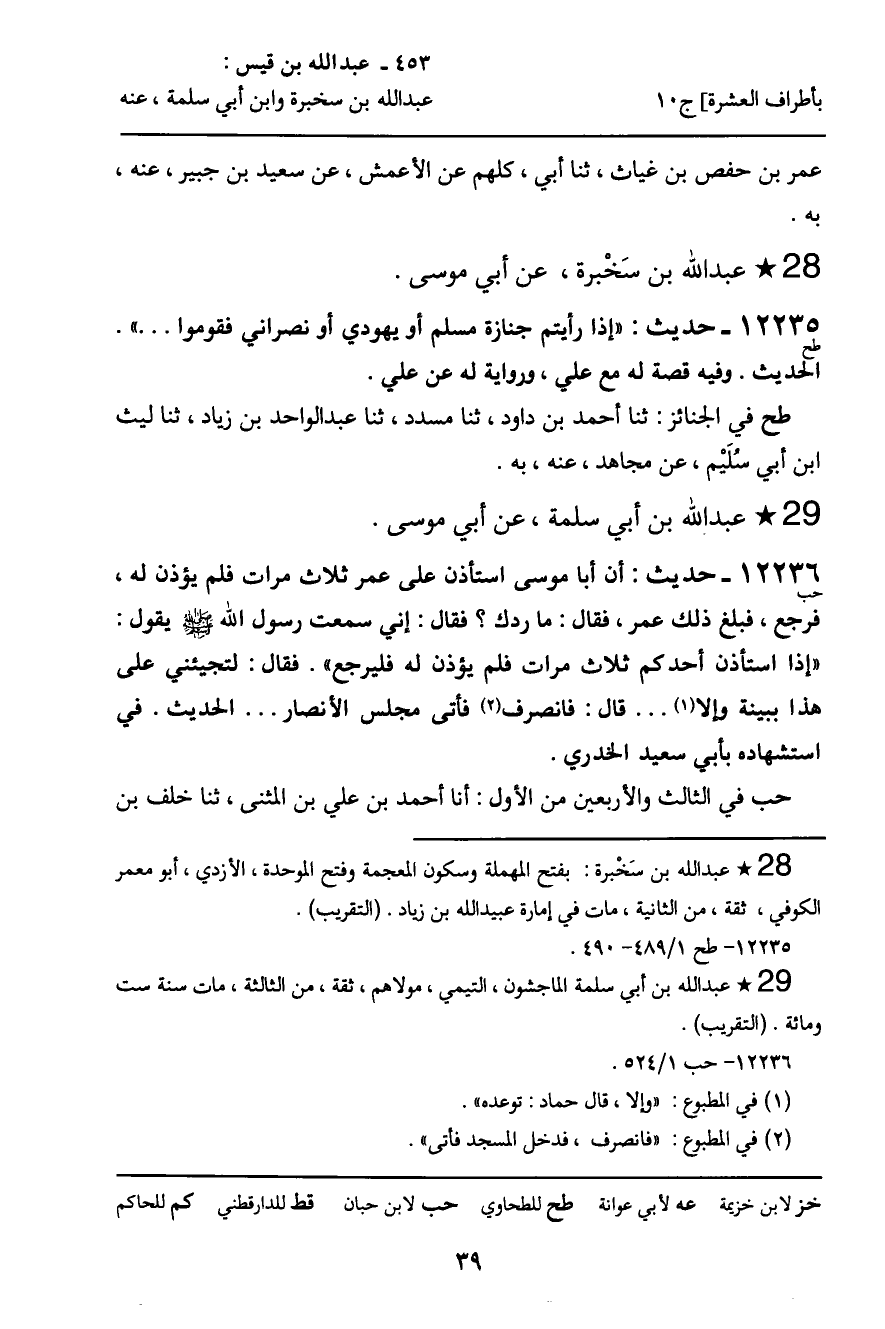 ٤٥٣ ـ عبدالله بن قيس :
بأطراف العشرة] ج١٠ عبدالله بن سخبرة وابن أبي سلمة ، عنه
عمر بن حفص بن غياث ، ثنا أبي ، كلهم عن الأعمش ، عن سعيد بن جبير ، عنه ،
به .
28 ★ عبدالله بن سَخْبرة ، عن أبي موسى .
١٢٢٣٥ ـ حديث : «إذا رأيتم جنازة مسلم أو يهودي أو نصراني فقوموا ...» .
طح
الحديث . وفيه قصة له مع علي ، ورواية له عن علي .
طح في الجنائز : ثنا أحمد بن داود ، ثنا مسدد ، ثنا عبدالواحد بن زياد ، ثنا ليث
ابن أبي سُلَيْم ، عن مجاهد ، عنه ، به .
29 ★ عبدالله بن أبي سلمة ، عن أبي موسى .
١٢٢٣٦ ـ حديث : أن أبا موسى استأذن على عمر ثلاث مرات فلم يؤذن له ،
حب
فرجع ، فبلغ ذلك عمر ، فقال : ما ردك ؟ فقال : إني سمعت رسول الله ﷺ يقول :
«إذا استأذن أحدكم ثلاث مرات فلم يؤذن له فليرجع» . فقال : لتجيئني على
هذا ببينة وإلا(١) ... قال : فانصرف(٢) فأتى مجلس الأنصار ... الحديث . في
استشهاده بأبي سعيد الخدري .
حب في الثالث والأربعين من الأول : أنا أحمد بن علي بن المثنى ، ثنا خلف بن
28 ★ عبدالله بن سَخْبرة : بفتح المهملة وسكون المعجمة وفتح الموحدة ، الأزدي ، أبو معمر
الكوفي ، ثقة ، من الثانية ، مات في إمارة عبيدالله بن زياد . (التقريب) .
١٢٢٣٥– طح ٤٨٩/١– ٤٩٠ .
29 ★ عبدالله بن أبي سلمة الماجشون ، التيمي ، مولاهم ، ثقة ، من الثالثة ، مات سنة ست
ومائة . (التقريب) .
١٢٢٣٦– حب ٥٢٤/١ .
(١) في المطبوع : «وإلا ، قال حماد : توعده» .
(٢) في المطبوع : «فانصرف ، فدخل المسجد فأتى» .
خز لابن خزيمة عه لأبي عوانة طح للطحاوي حب لابن حبان قط للدارقطني كم للحاكم
٣٩